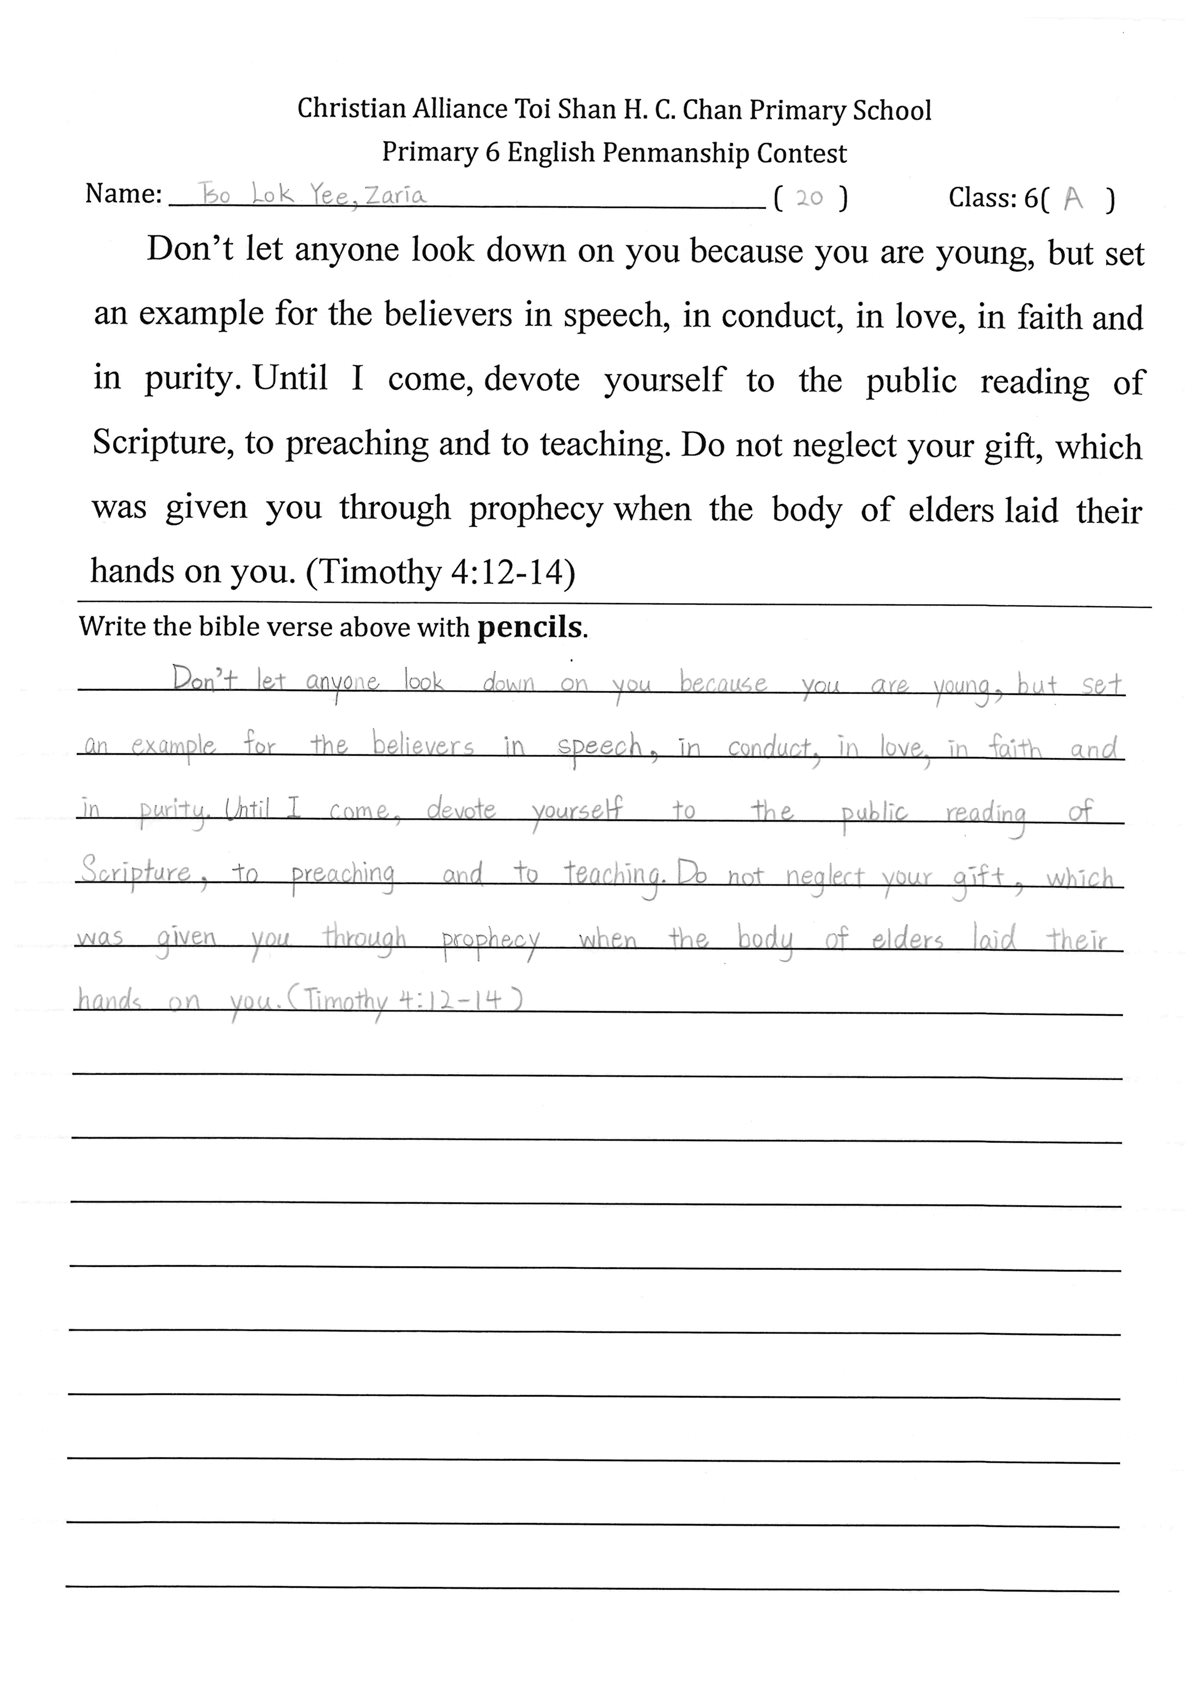 Christian Alliance Toi Shan H. C. Chan Primary School
Primary 6 English Penmanship Contest
Name: Tso Lok Yee, Zaria ( 20 ) Class: 6( A )
Don't let anyone look down on you because you are young, but set
an example for the believers in speech, in conduct, in love, in faith and
in purity. Until I come, devote yourself to the public reading of
Scripture, to preaching and to teaching. Do not neglect your gift, which
was given you through prophecy when the body of elders laid their
hands on you. (Timothy 4:12-14)
Write the bible verse above with pencils.
Don't let anyone look down on you because you are young, but set
an example for the believers in speech, in conduct, in love, in faith and
in purity. Until I come, devote yourself to the public reading of
Scripture, to preaching and to teaching. Do not neglect your gift, which
was given you through prophecy when the body of elders laid their
hands on you. (Timothy 4:12-14)